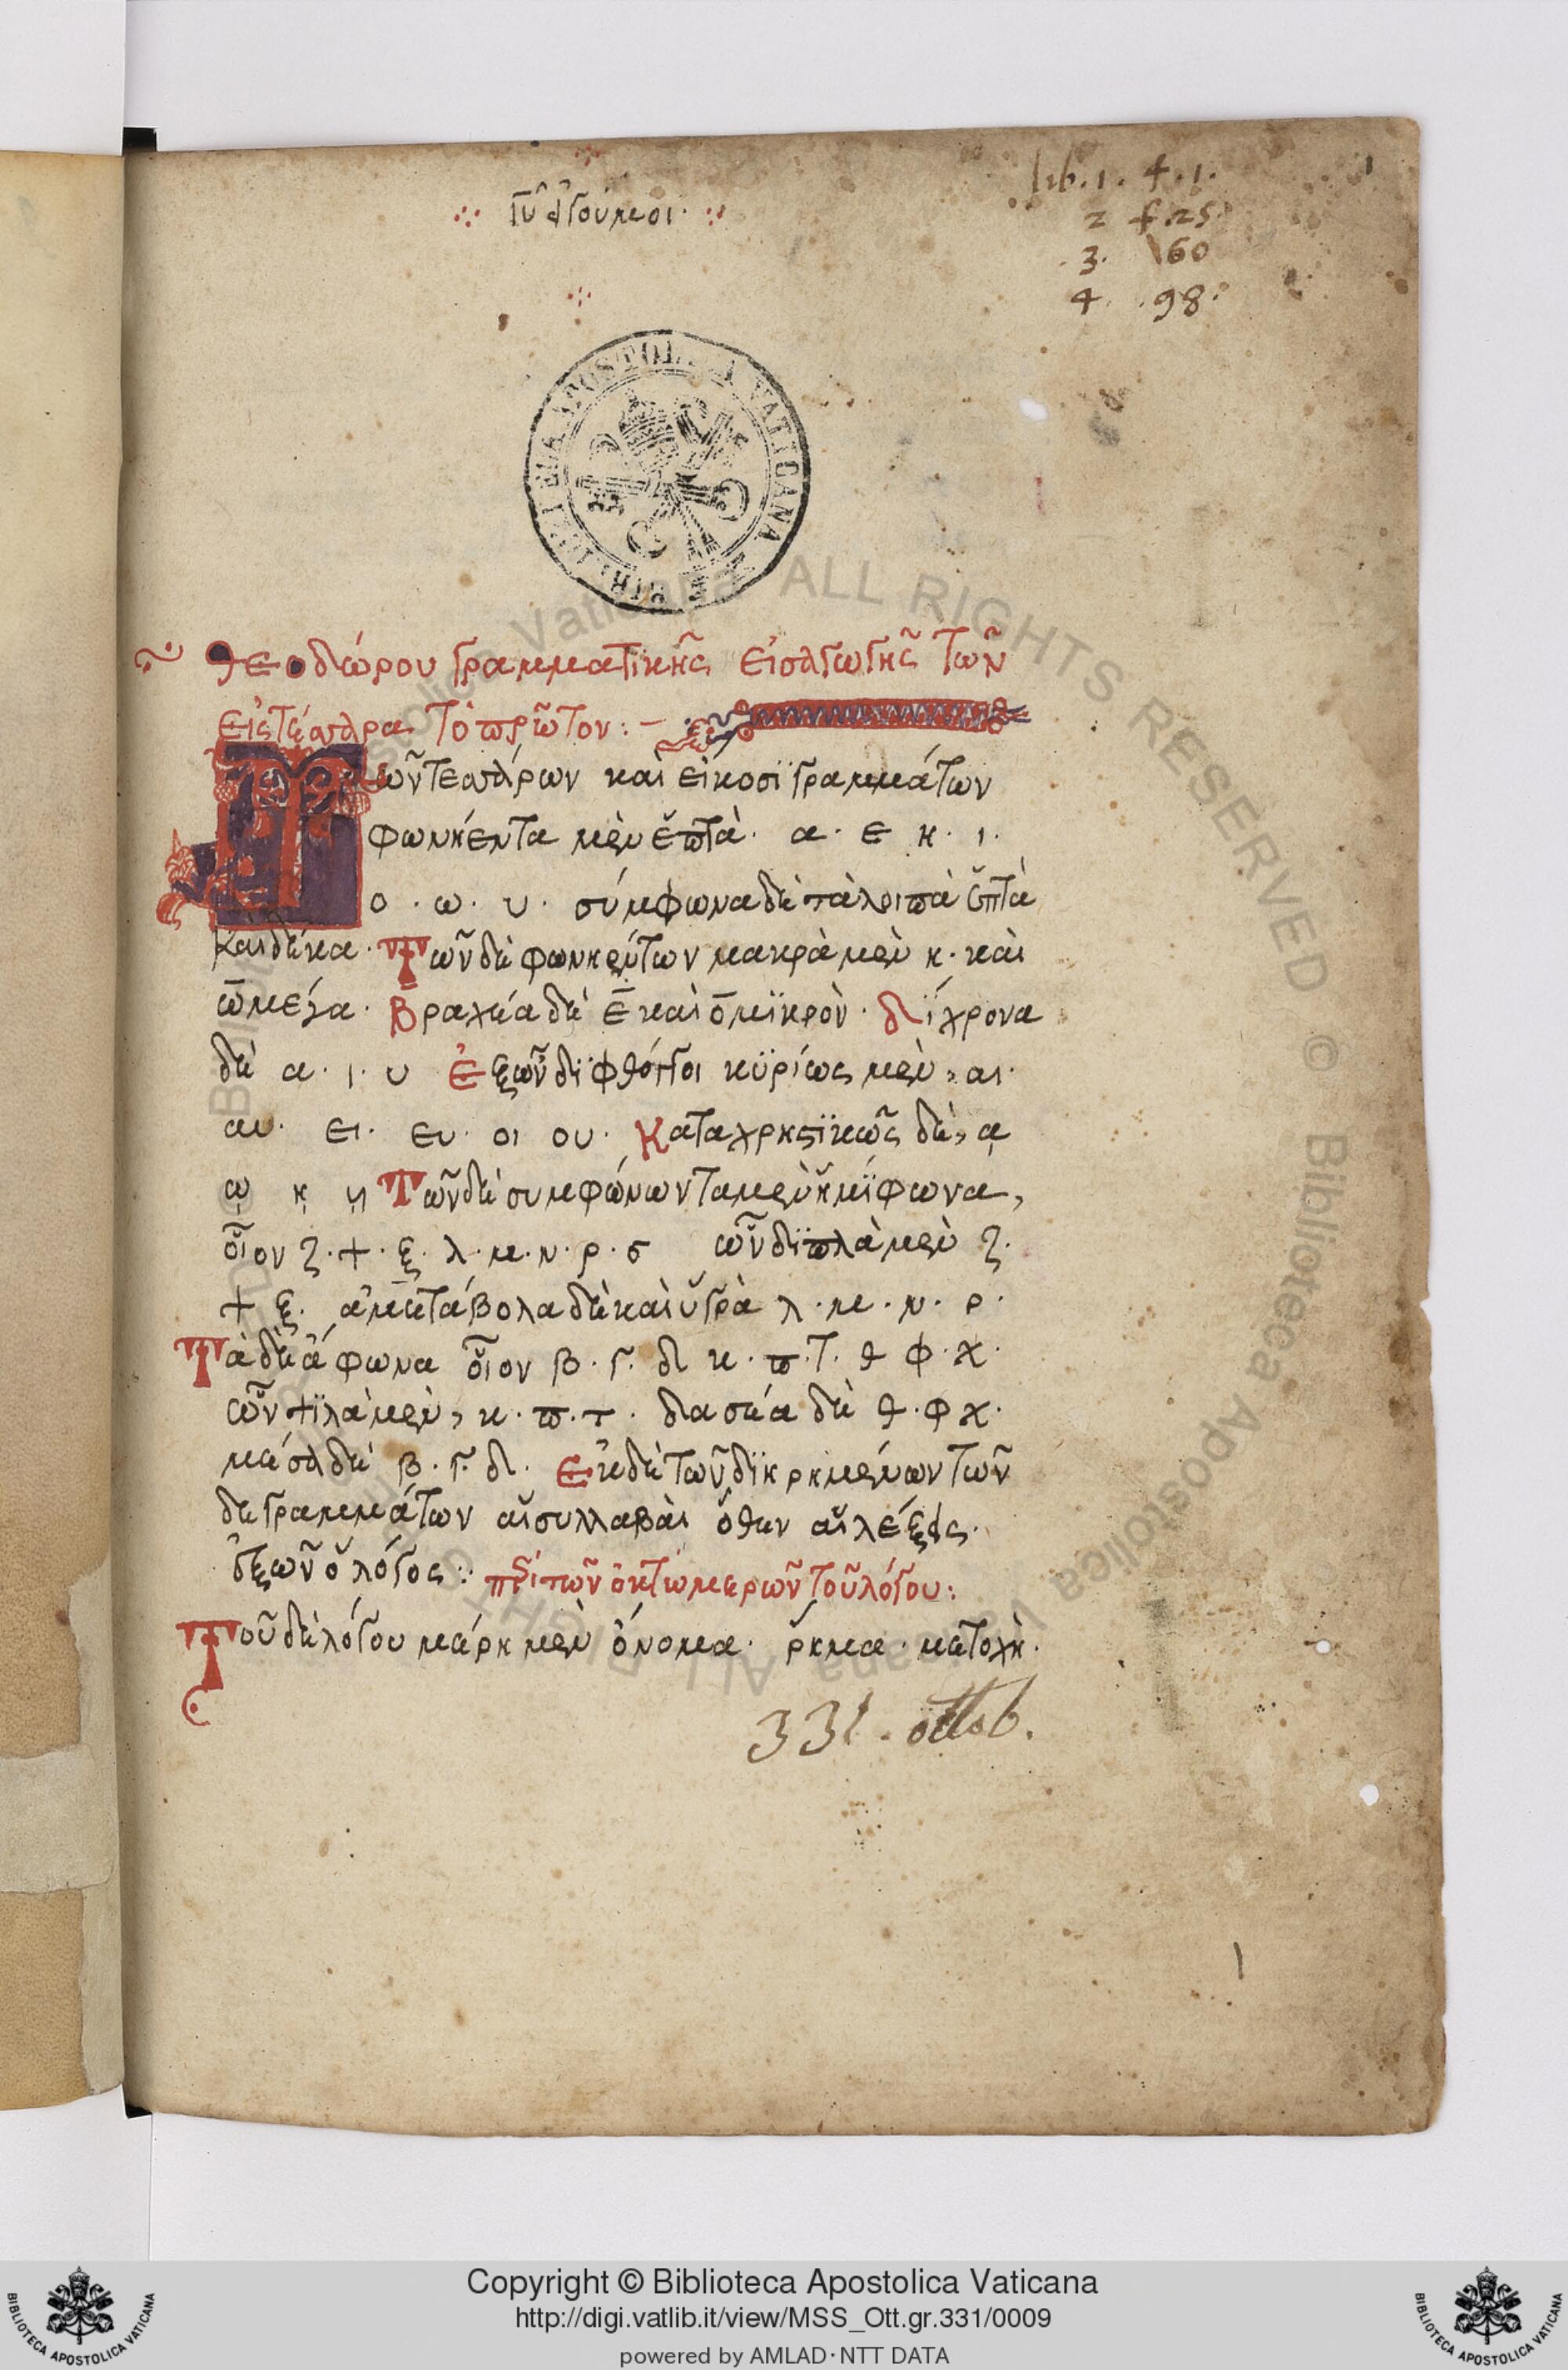 lib. 1. f. 1. 1
2 f. 25.
3. 60
4. 98.
Θεοδώρου γραμματικῆς εἰσαγωγῆς τῶν
εἰς τέσσαρα τὸ πρῶτον:–
Τῶν τεσσάρων καὶ εἴκοσϊ γραμμάτων
φωνήεντα μὲν ἑπτὰ· α· ε η· ι·
ο· ω· υ· σύμφωνα δὲ τὰ λοιπὰ ἑπτὰ
καίδεκα· Τῶν δὲ φωνηέντων μακρὰ μὲν η· καὶ
ω μέγα· Βραχέα δὲ ε καὶ ο μϊκρὸν· δίχρονα
δὲ α· ι· υ Ἐξ ὧν δϊφθόγγοι κϋρίως μὲν, αι·
αυ· ει· ευ· οι ου· Καταχρηστϊκῶς δὲ, ᾳ
ῳ ῃ υι Τῶν δὲ συμφώνων τὰ μὲν ἡμίφωνα,
οἷον ζ· ψ· ξ· λ· μ· ν· ρ· σ ὧν δϊπλὰ μὲν ζ·
ψ ξ· ἀμετάβολα δὲ καὶ ὑγρὰ λ· μ· ν· ρ·
Τὰ δὲ ἄφωνα οἷον β· γ· δ κ· π· τ· θ φ· χ·
ὧν ψϊλὰ μὲν, κ· π· τ· δασέα δὲ θ· φ χ·
μέσα δὲ β· γ· δ· Ἐκ δὲ τῶν δϊηρημένων τῶν
δε γραμμάτων αἱ συλλαβαὶ ὅθεν αἱ λέξεις·
ἐξ ὧν ὁ λόγος:· περὶ τῶν ὀκτὼ μερῶν τοῦ λόγου:
Τοῦ δὲ λόγου μέρη μὲν ὄνομα· ῥῆμα· μετοχὴ·
331. ottob.
1
BIBLIOTECA APOSTOLICA VATICANA
Copyright © Biblioteca Apostolica Vaticana
http://digi.vatlib.it/view/MSS_Ott.gr.331/0009
powered by AMLAD·NTT DATA
BIBLIOTECA APOSTOLICA VATICANA